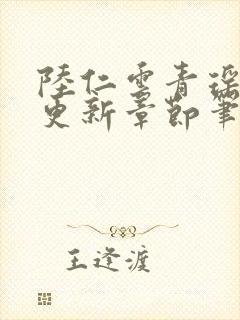 陸仁雲青瑶
更新章節筆
王逢渡